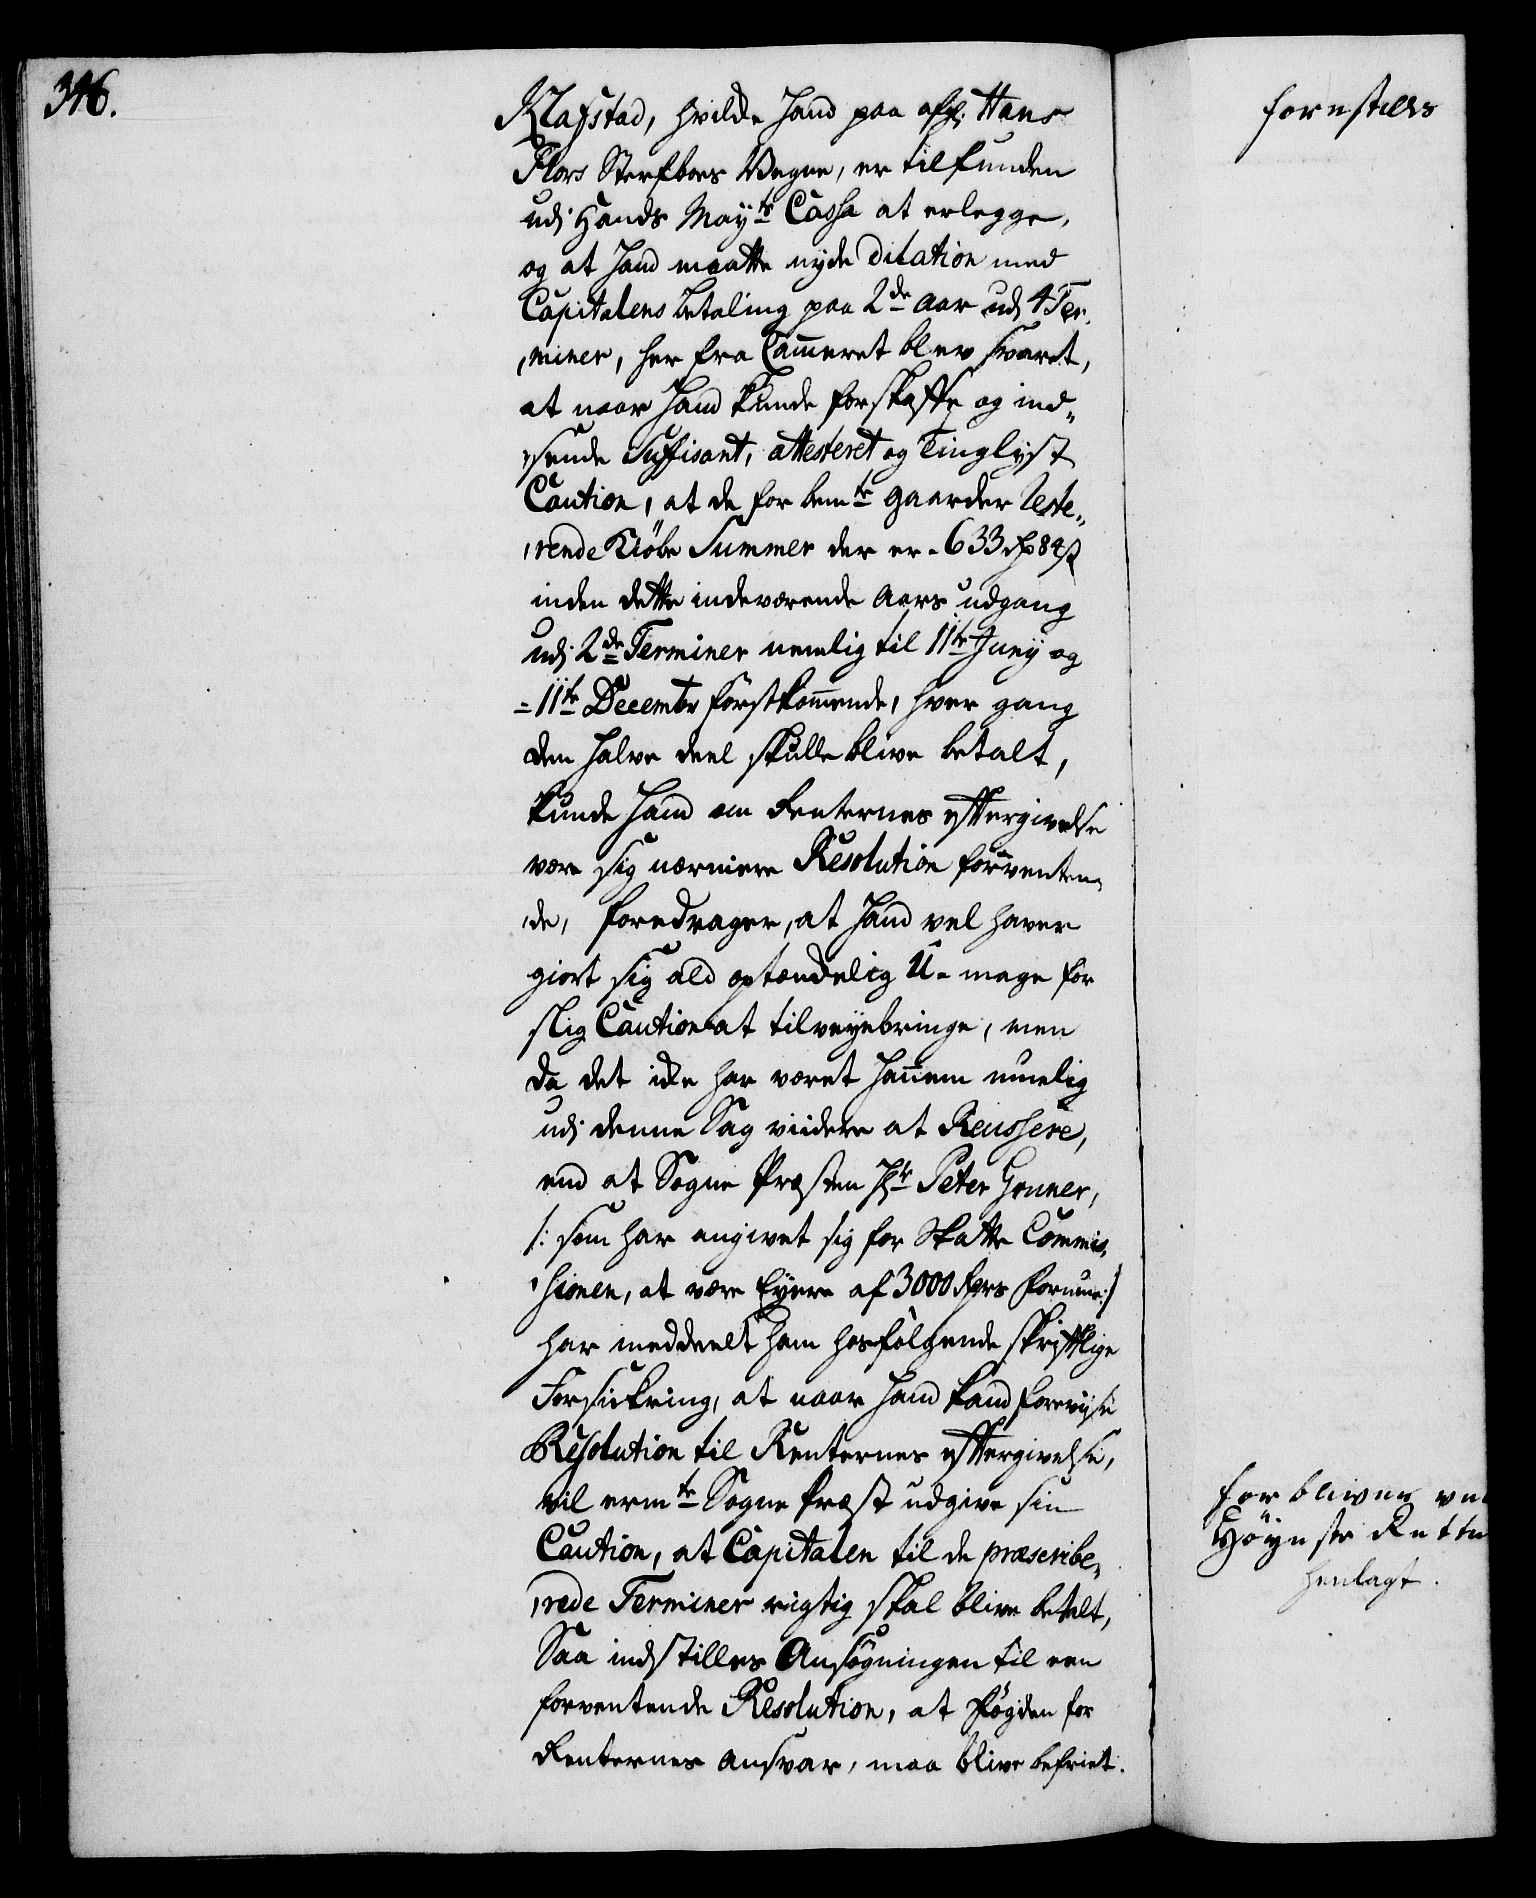 346.
Klafstad, hvilke Hand paa afg: Hans
Flors Sterfboes Vegne, er tilfunden
udj Hands Mayts Cassa at erlegge,
og at Hand maatte nyde Dilation med
Capitalens betaling paa 2de Aar udj 4 Ter,
,miner, her fra Cammeret blev svaret,
at naar Hand kunde forskaffe og ind„
sende Suffisant, attesteret og Tinglyst
Caution, at de for bemte Gaarder Reste„
,rende Kiöbe Summer der er - 633 rd 84 s
inden dette indeværende Aars udgang
udj 2de Terminer nemlig til 11te Junij og
= 11te Decembr förstkommende, hver gang
den halve deel skulle blive betalt,
kunde Hand om Renternes eftergivelse
være sig nærmere Resolution forventen„
,de, foredrager, at Hand vel haver
giort sig ald optændelig U-mage for
slig Caution at tilveyebringe, men
da det icke har været Hannem muelig
udj denne Sag viidere at Reussere,
end at Sogne Præsten Hr Peter Gruner,
/: som har angivet sig for Skatte Commis,
,sionen, at være Eyere af 3000 Rdrs Formue :/
har meddeelt ham hosfölgende skriftlige
Forsickring, at naar Hand kand foreviise
Resolution til Renternes eftergivelse,
vil ermte Sogne Præst udgive sin
Caution, at Capitalen til de præscribe„
,rede Terminer rigtig skal blive betalt,
Saa indstilles Ansögningen til een
forventende Resolution, at Fogden for
Renternes Ansvar, maa blive befriet.
forestilles
forbliver ved
Höyeste Rette
henlagt.